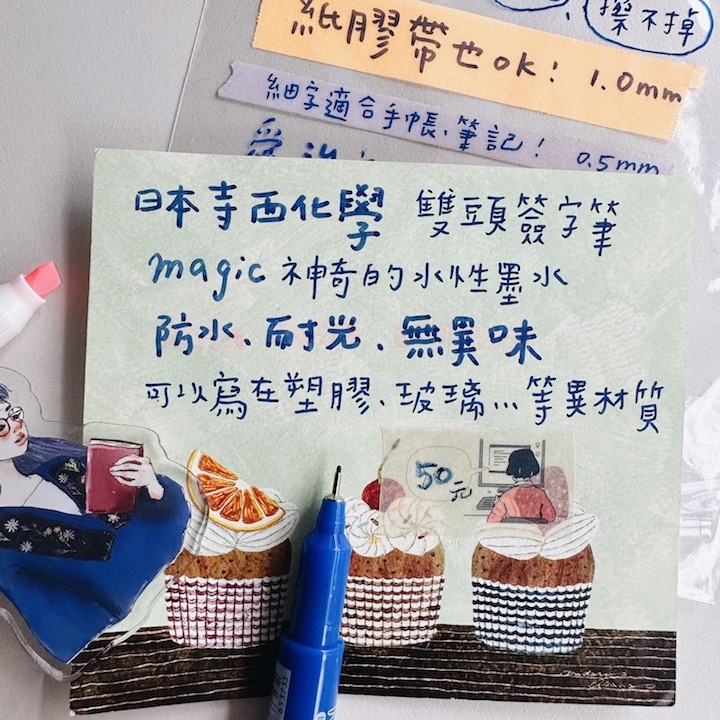 擦不掉
紙膠帶也ok! 1.0mm
細字適合手帳、筆記! 0.5mm
日本寺西化學 雙頭簽字筆
magic 神奇的水性墨水
防水、耐光、無異味
可以寫在塑膠、玻璃…等異材質
50元